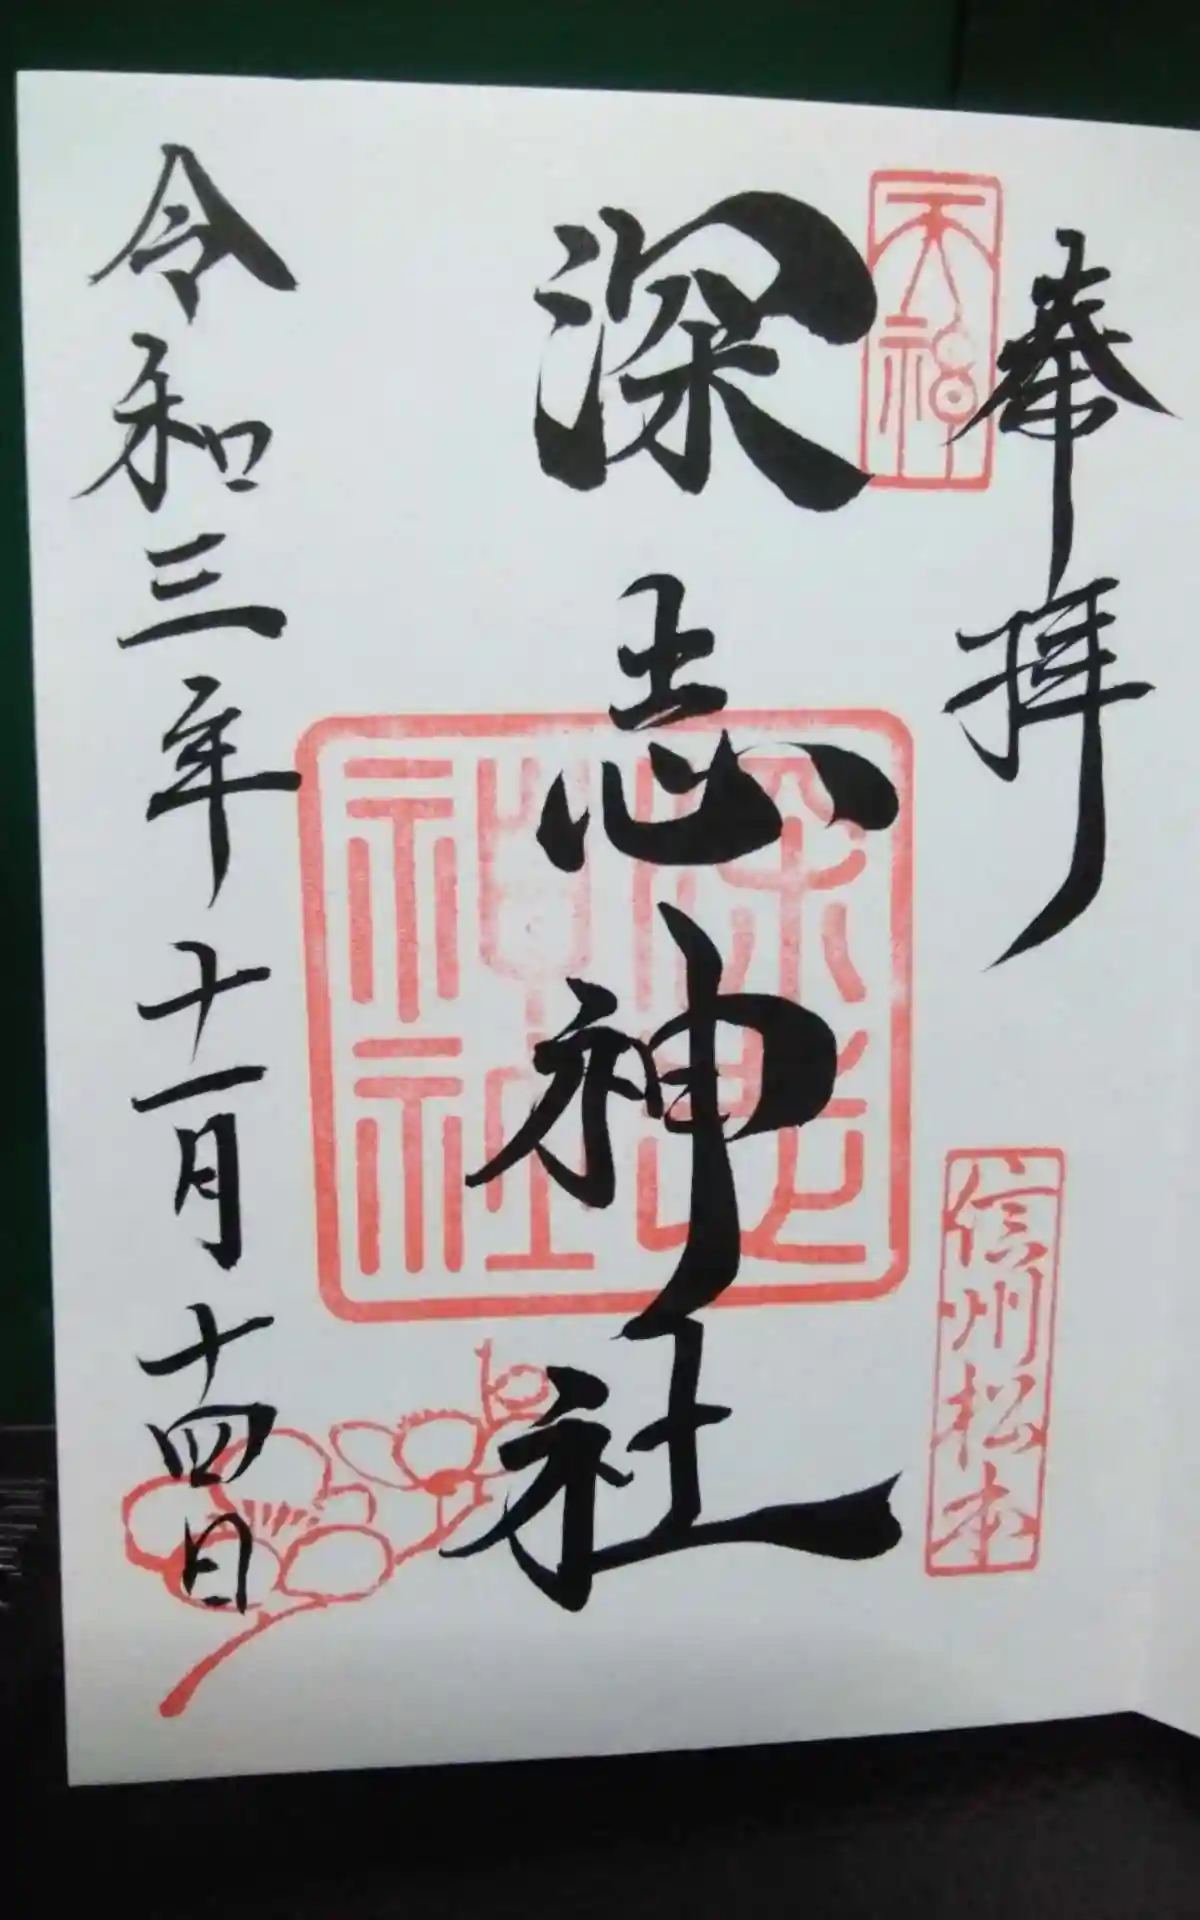 奉拝
天神
信州松本
深志神社
深志
神社
令和三年十一月十四日